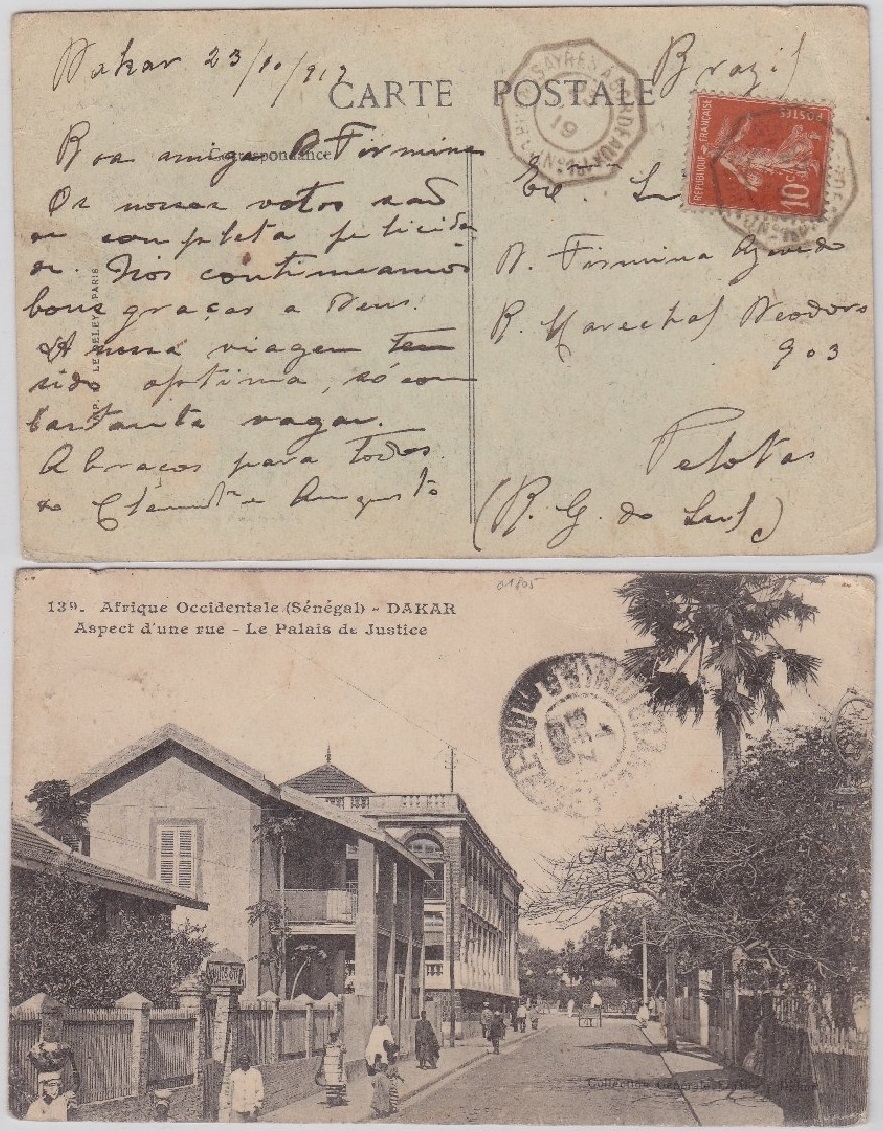 Dakar 23/10/917
CARTE POSTALE
Brazil
Correspondance
Boa amiga D Firmina
Os nossos votos são
de completa felicida
de. Nós continuamos
bons graças a Deus.
A nossa viagem tem
sido optima, só com
bastante vagar.
Abraços para todos
do Augusto
IMP. LE DELEY, PARIS
D. Firmina Azevedo
R. Marechal Deodoro
903
Pelotas
(R. G. do Sul)
RÉPUBLIQUE FRANÇAISE
POSTES
10c
BUENOS AYRES A BORDEAUX
19
01805
139. Afrique Occidentale (Sénégal) - DAKAR
Aspect d'une rue - Le Palais de Justice
Collection Générale Fortier, Dakar